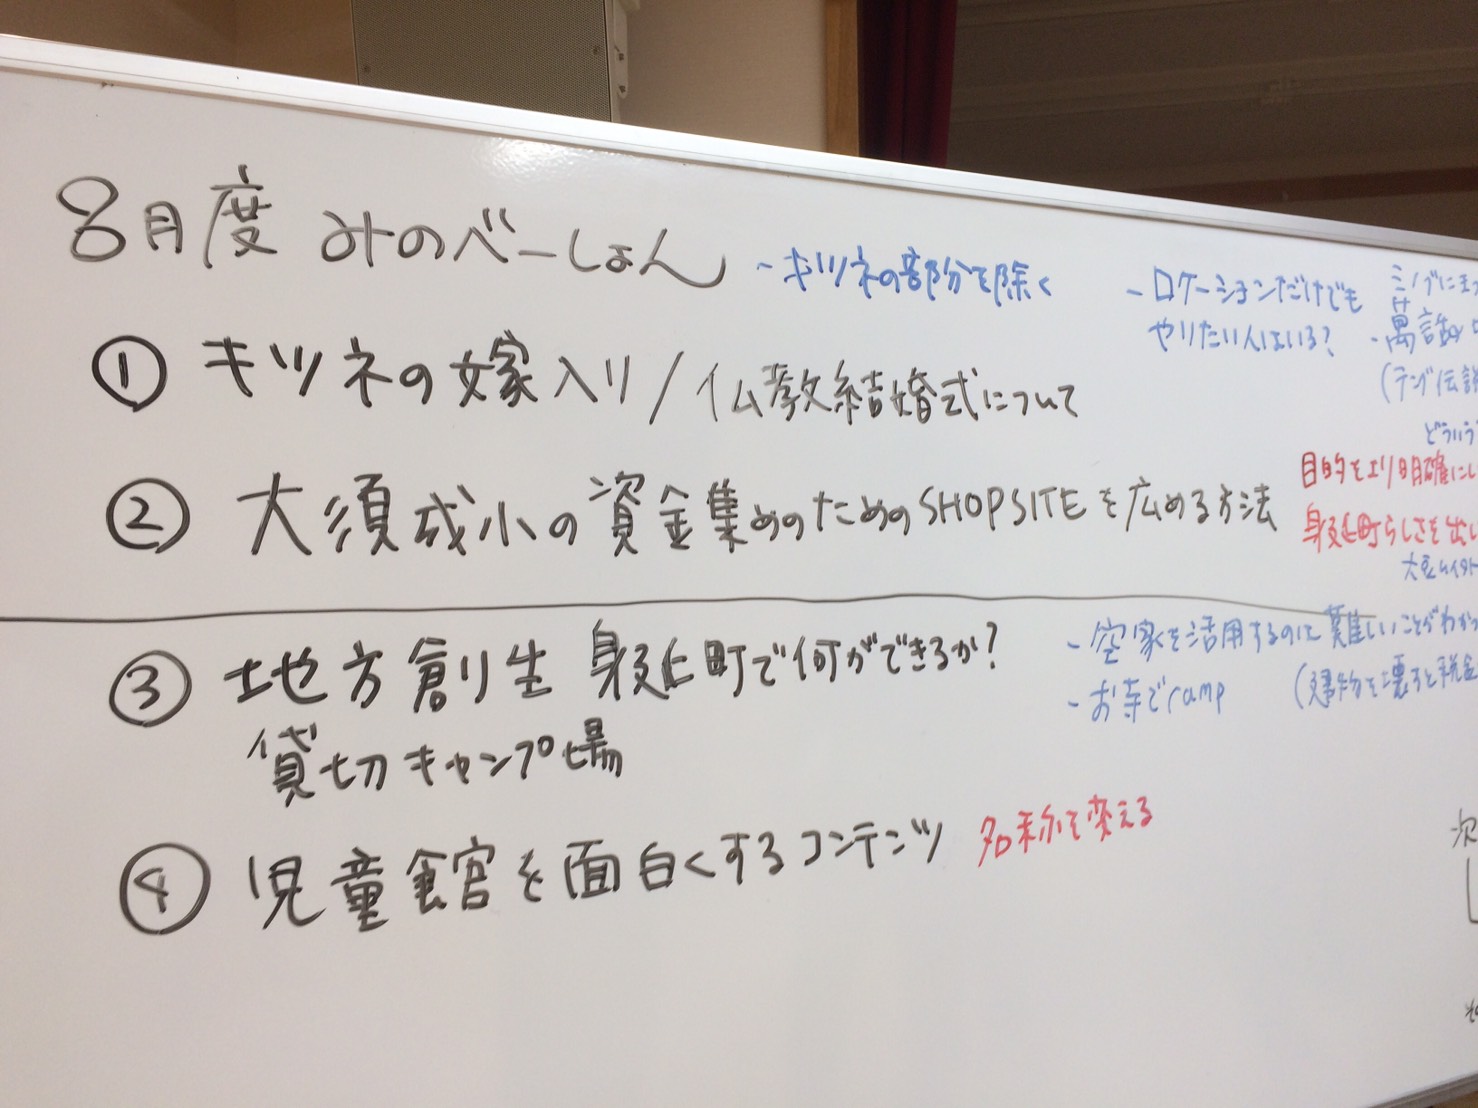 8月度 みのべーしょん
- キツネの部分を除く
- ロケーションだけでも
やりたい人はいる?
ミノブに
萬話
(テング伝説
どういう
① キツネの嫁入り/仏教結婚式について
目的をより明確にし
② 大須成小の資金集めのためのSHOPSITEを広める方法
身延町らしさを出し
大豆
③ 地方創生 身延町で何ができるか?
- 空家を活用するのに難しいことがわか
- お寺でcamp
(建物を壊すと税金
貸切キャンプ場
④ 児童館を面白くするコンテンツ
名称を変える
次